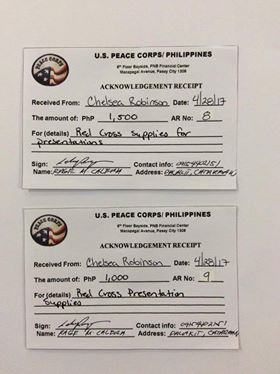 PEACE CORPS
U.S. PEACE CORPS/ PHILIPPINES
6th Floor Bayside, PNB Financial Center
Macapagal Avenue, Pasay City 1308
ACKNOWLEDGEMENT RECEIPT
Received From: Chelsea Robinson Date: 4/28/17
The amount of: PhP 1,500 AR No: 8
For (details) Red Cross Supplies for
presentations
Sign: Contact info:
Name: M Address:
PEACE CORPS
U.S. PEACE CORPS/ PHILIPPINES
6th Floor Bayside, PNB Financial Center
Macapagal Avenue, Pasay City 1308
ACKNOWLEDGEMENT RECEIPT
Received From: Chelsea Robinson Date: 4/28/17
The amount of: PhP 1,000 AR No: 9
For (details) Red Cross Presentation
Supplies
Sign: Contact info:
Name: M Address: